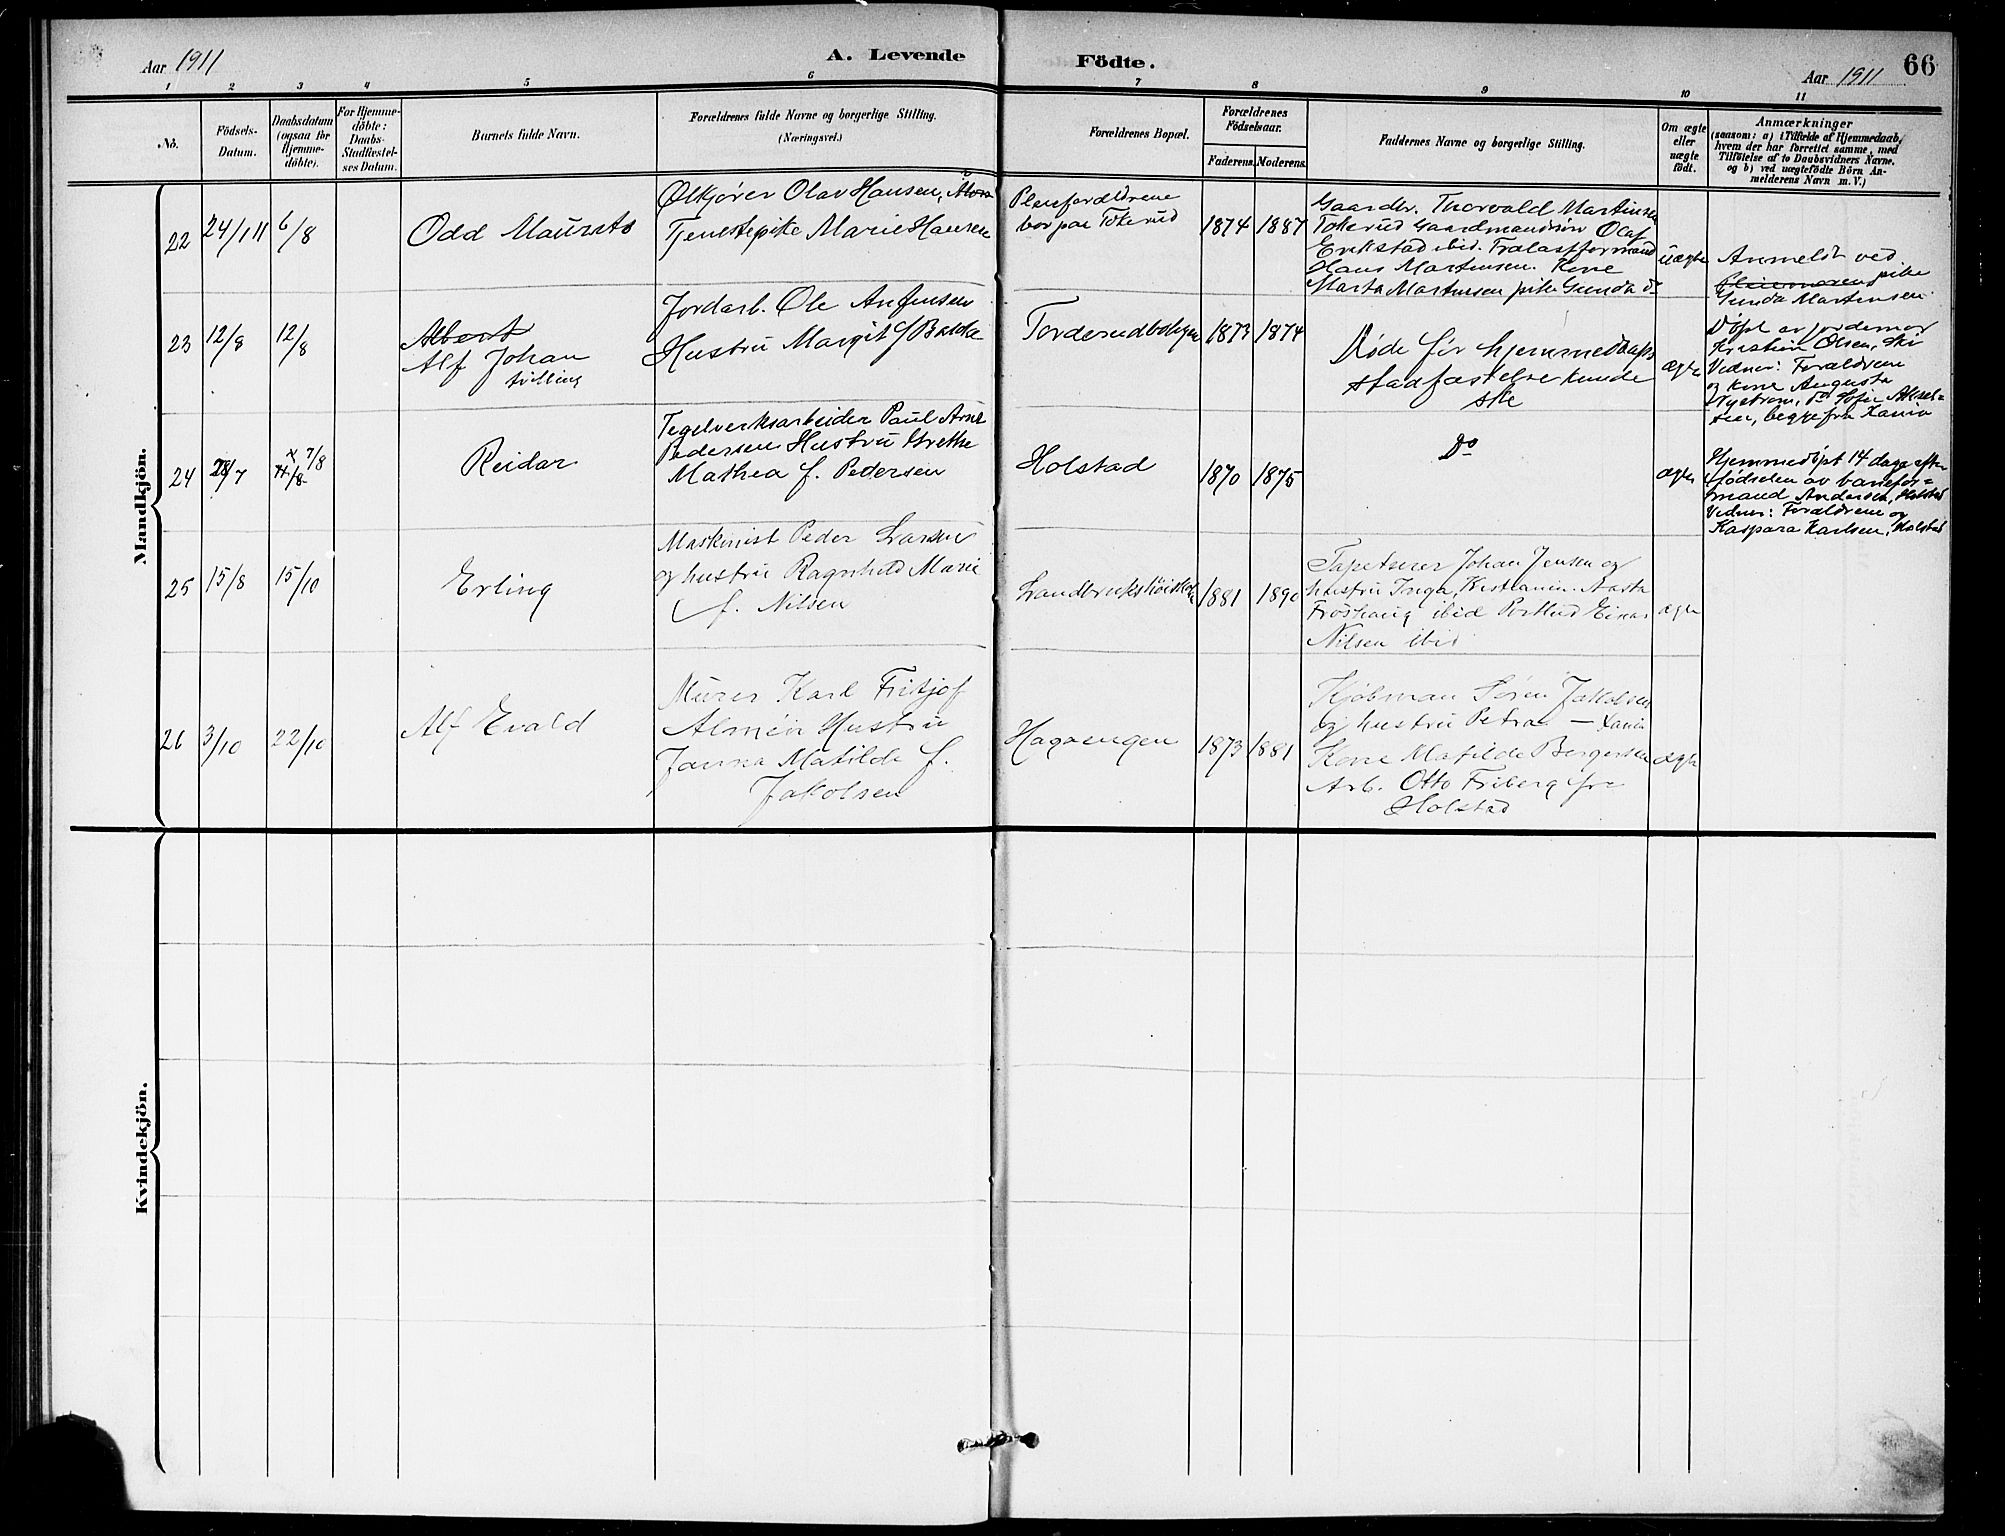 Aar 1911
A. Levende
Födte.
66
Aar 1911
1 2 3 4 5 6 7 8 9 10 11
No.
Födsels-
Datum.
Daabsdatum
(ogsaa for
Hjemme-
döbte).
For Hjemme-
döbte:
Daabs-
Stadfæstel-
ses Datum.
Barnets fulde Navn.
Forældrenes fulde Navne og borgerlige Stilling.
(Næringsvei.)
Forældrenes Bopæl.
Forældrenes
Födselsaar.
Faderens. Moderens.
Faddernes Navne og borgerlige Stilling.
Om ægte
eller
uægte
födt.
Anmærkninger
(saasom: a) i Tilfælde af Hjemmedaab,
hvem der har forrettet samme, med
Tilföielse af to Daabsvidners Navne,
og b) ved uægtefödte Börn An-
melderens Navn m. V.)
Mandkjön.
22
24/1 11
6/8
Odd Maurits
Ølkjører Olav Hansen,
Tjenestepike Marie Hansen
Pleieforældrene
bor paa Tokerud
1874
1887
Gaardbr. Thorvald Martinsen
Tokerud Gaardmandsøn Olaf
Erikstad ibid.
Hans Martinsen. Kone
Marta Martinsen pike Gunda do
uægte
Anmeldt ved
pike
Gunda Martinsen
23
12/8
12/8
Albert
Alf Johan
tvilling
Jordarb. Ole Anfinsen
Hustru Margit f.
1873
1874
Døde før hjemmedaabs
stadfæstelse kunde
ske
ægte
Døpt av jordemor
Kristine Olsen, Ski
Vidner: Forældrene
og kone Augusta
Nystrøm, do Sofie
begge fra Xania
24
28/7
x 7/8
11/8
Reidar
Tegelverksarbeider Paul Arne
Pedersen Hustru Grethe
Mathea f. Pedersen
Holstad
1870
1875
Do
ægte
Hjemmedøpt 14 daga efter
fødselen av banefor=
mand Andersen, Holstad
Vidner: Forældrene og
Kaspara Karlsen, Holstad
25
15/8
15/10
Erling
Maskinist Peder Larsen
og hustru Ragnhild Marie
f. Nilsen
Landbrukshøiskolen
1881
1890
Tapetserer Johan Jensen og
hustru Inga, Kristiania. Aasta
Frøshaug ibid Einar
Nilsen ibid
ægte
26
3/10
22/10
Alf Evald
Murer Karl Fritjof
Almèn Hustru
Janna Matilde f.
Jakobsen
Hagaengen
1873
1881
Kjøbman Søren Jakobsen
og hustru Petra — Xania
Kone Matilde Bergersen
Arb. Otto Friberg fra
Holstad
ægte
Kvindekjön.